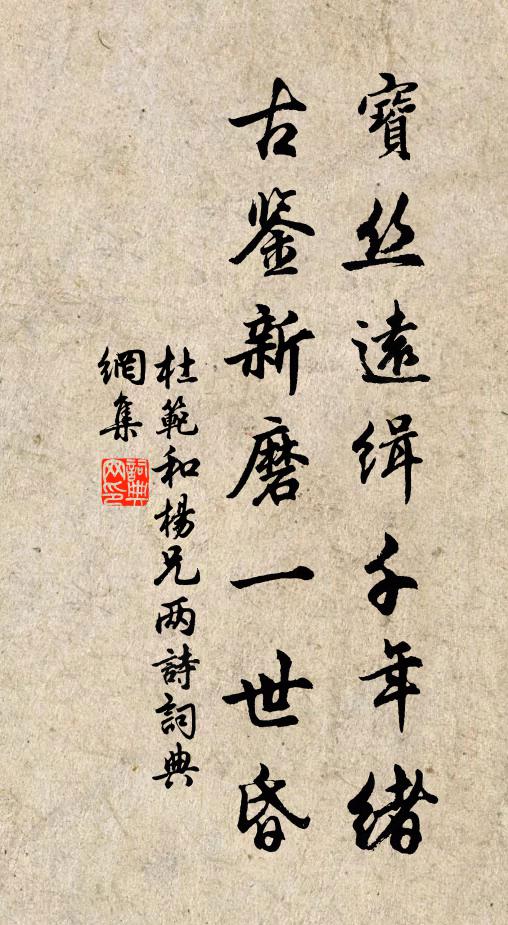 寶丝遠緝千年緒
古鉴新磨一世昏
杜範和楊兄两詩詞典
網集
詞典
网印